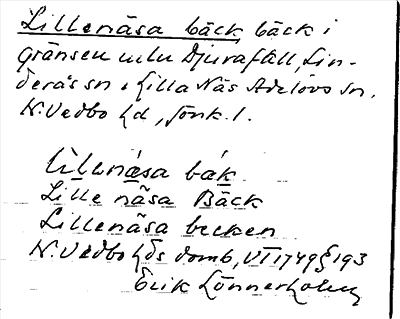 Lillenäsa bäck, bäck i
gränsen mlu Djurafall, Lin-
derås sn o Lilla Näs Adelövs sn,
N. Vedbo hd, Jönk. l.
Lillenäsa bäk
Lille näsa Bäck
Lillenäsa becken
N. Vedbo hds domb, VT 1749 § 193
Erik Lönnerholm